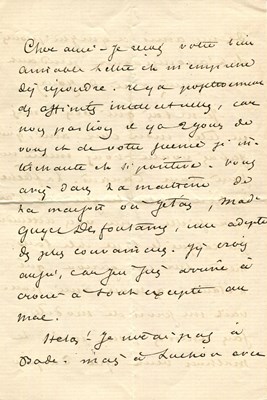 Cher ami – Je reçois votre bien
aimable lettre et m'empresse
d'y répondre. Il y a positivement
des affinités intellectuelles, car
nous parlions il y a 2 jours de
vous et de votre poésie si
et si positive. Vous
avez dans la maîtresse de
la maison où j'étais, Mad
Guyet Desfontaines, une adepte
des plus convaincues. J'y crois
aussi, car j'en suis arrivé à
croire à tout excepté au
mal.
Hélas! Je n'étais pas à
Bade. mais à Luchon avec